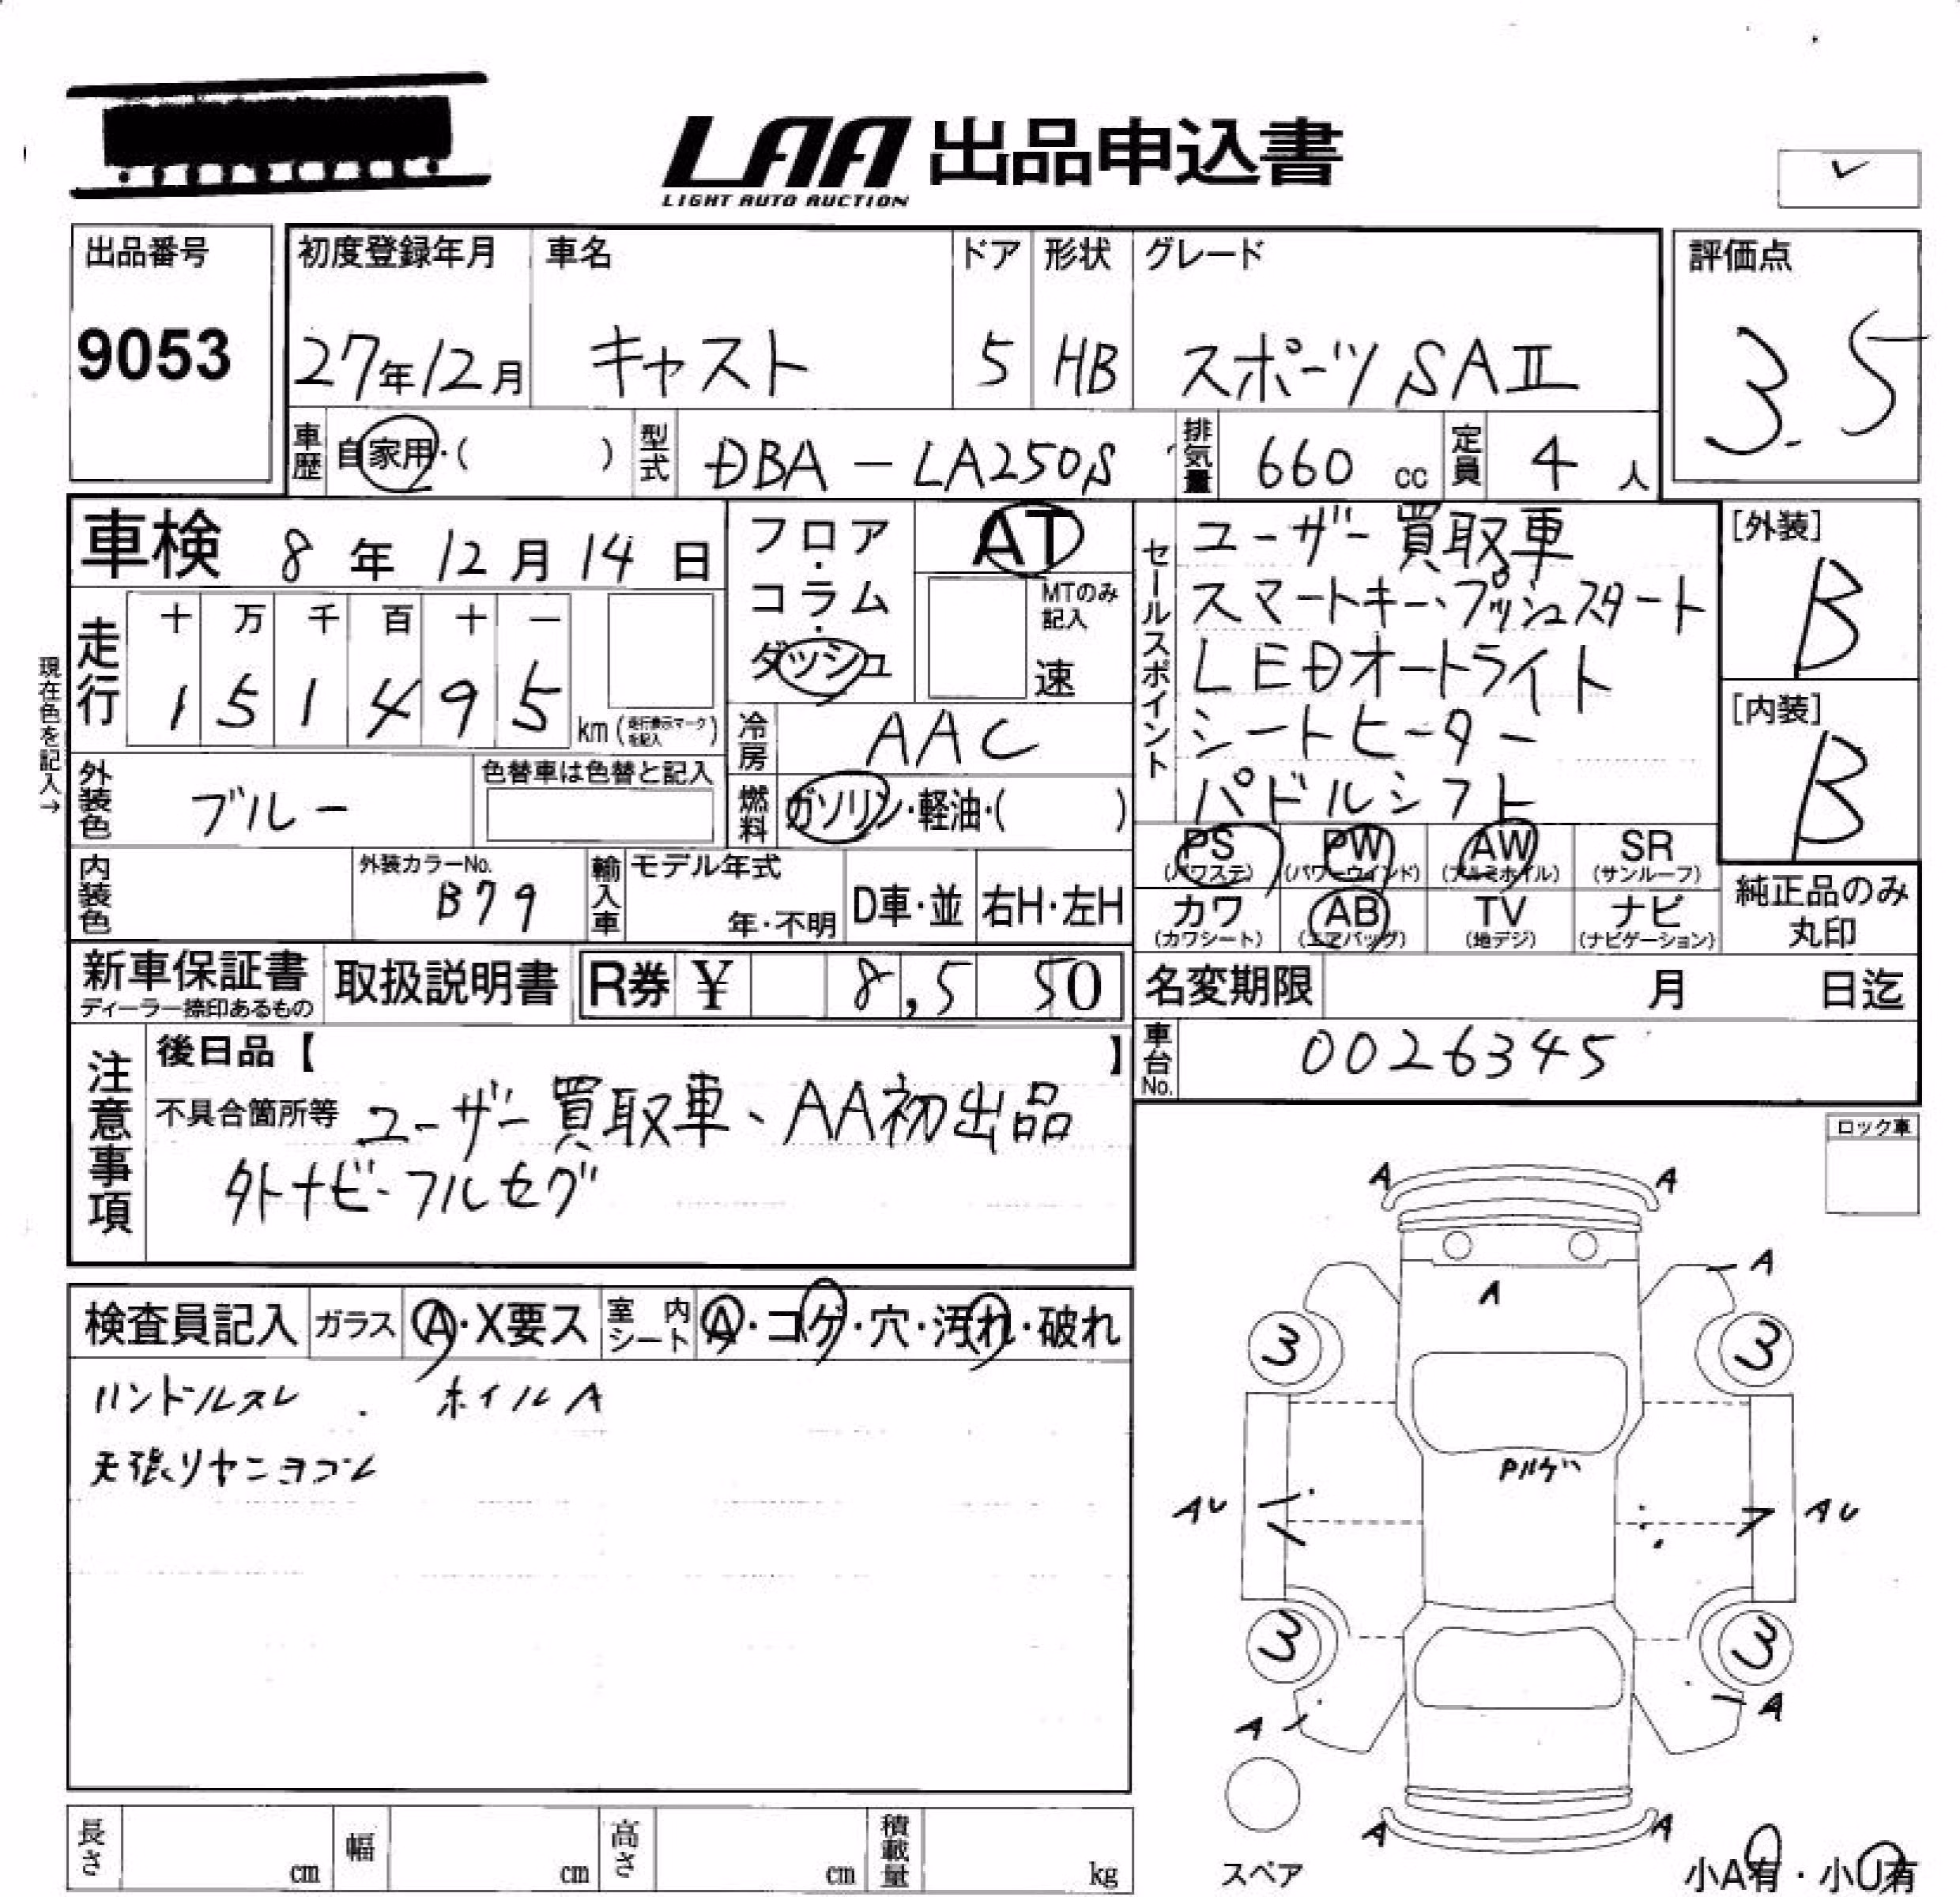 LAA 出品申込書
LIGHT AUTO AUCTION
✓
出品番号
9053
初度登録年月
27年12月
車名
キャスト
ドア
5
形状
HB
グレード
スポーツSAⅡ
評価点
3.5
車歴
自家用・( )
型式
DBA-LA250S
排気量
660 cc
定員
4 人
車検 8年12月14日
フロア・コラム・ダッシュ
AT
MTのみ記入
速
セールスポイント
ユーザー買取車
スマートキー、プッシュスタート
LEDオートライト
シートヒーター
パドルシフト
[外装]
B
[内装]
B
現在色を記入→
走行
十 万 千 百 十 一
1 5 1 4 9 5 km (走行表示マークを記入)
冷房
AAC
外装色
ブルー
色替車は色替と記入
燃料
ガソリン・軽油・( )
PS (パワステ)
PW (パワーウインド)
AW (アルミホイル)
SR (サンルーフ)
カワ (カワシート)
AB (エアバッグ)
TV (地デジ)
ナビ (ナビゲーション)
純正品のみ
丸印
内装色
外装カラーNo.
B79
輸入車
モデル年式
年・不明
D車・並
右H・左H
新車保証書
ディーラー捺印あるもの
取扱説明書
R券 ¥ 8,550
名変期限 月 日迄
車台No.
0026345
注意事項
後日品【 】
不具合箇所等 ユーザー買取車、AA初出品
外ナビ・フルセグ
ロック車
検査員記入 ガラス A・X要ス 室内シート A・コゲ・穴・汚れ・破れ
ハンドルスレ . ホイルA
天張りヤニヨゴレ
A A
A
A
3 3
Pハゲ
AU AU
3 3
A A
スペア
A A
小A有・小U有
長さ cm
幅 cm
高さ cm
積載量 kg